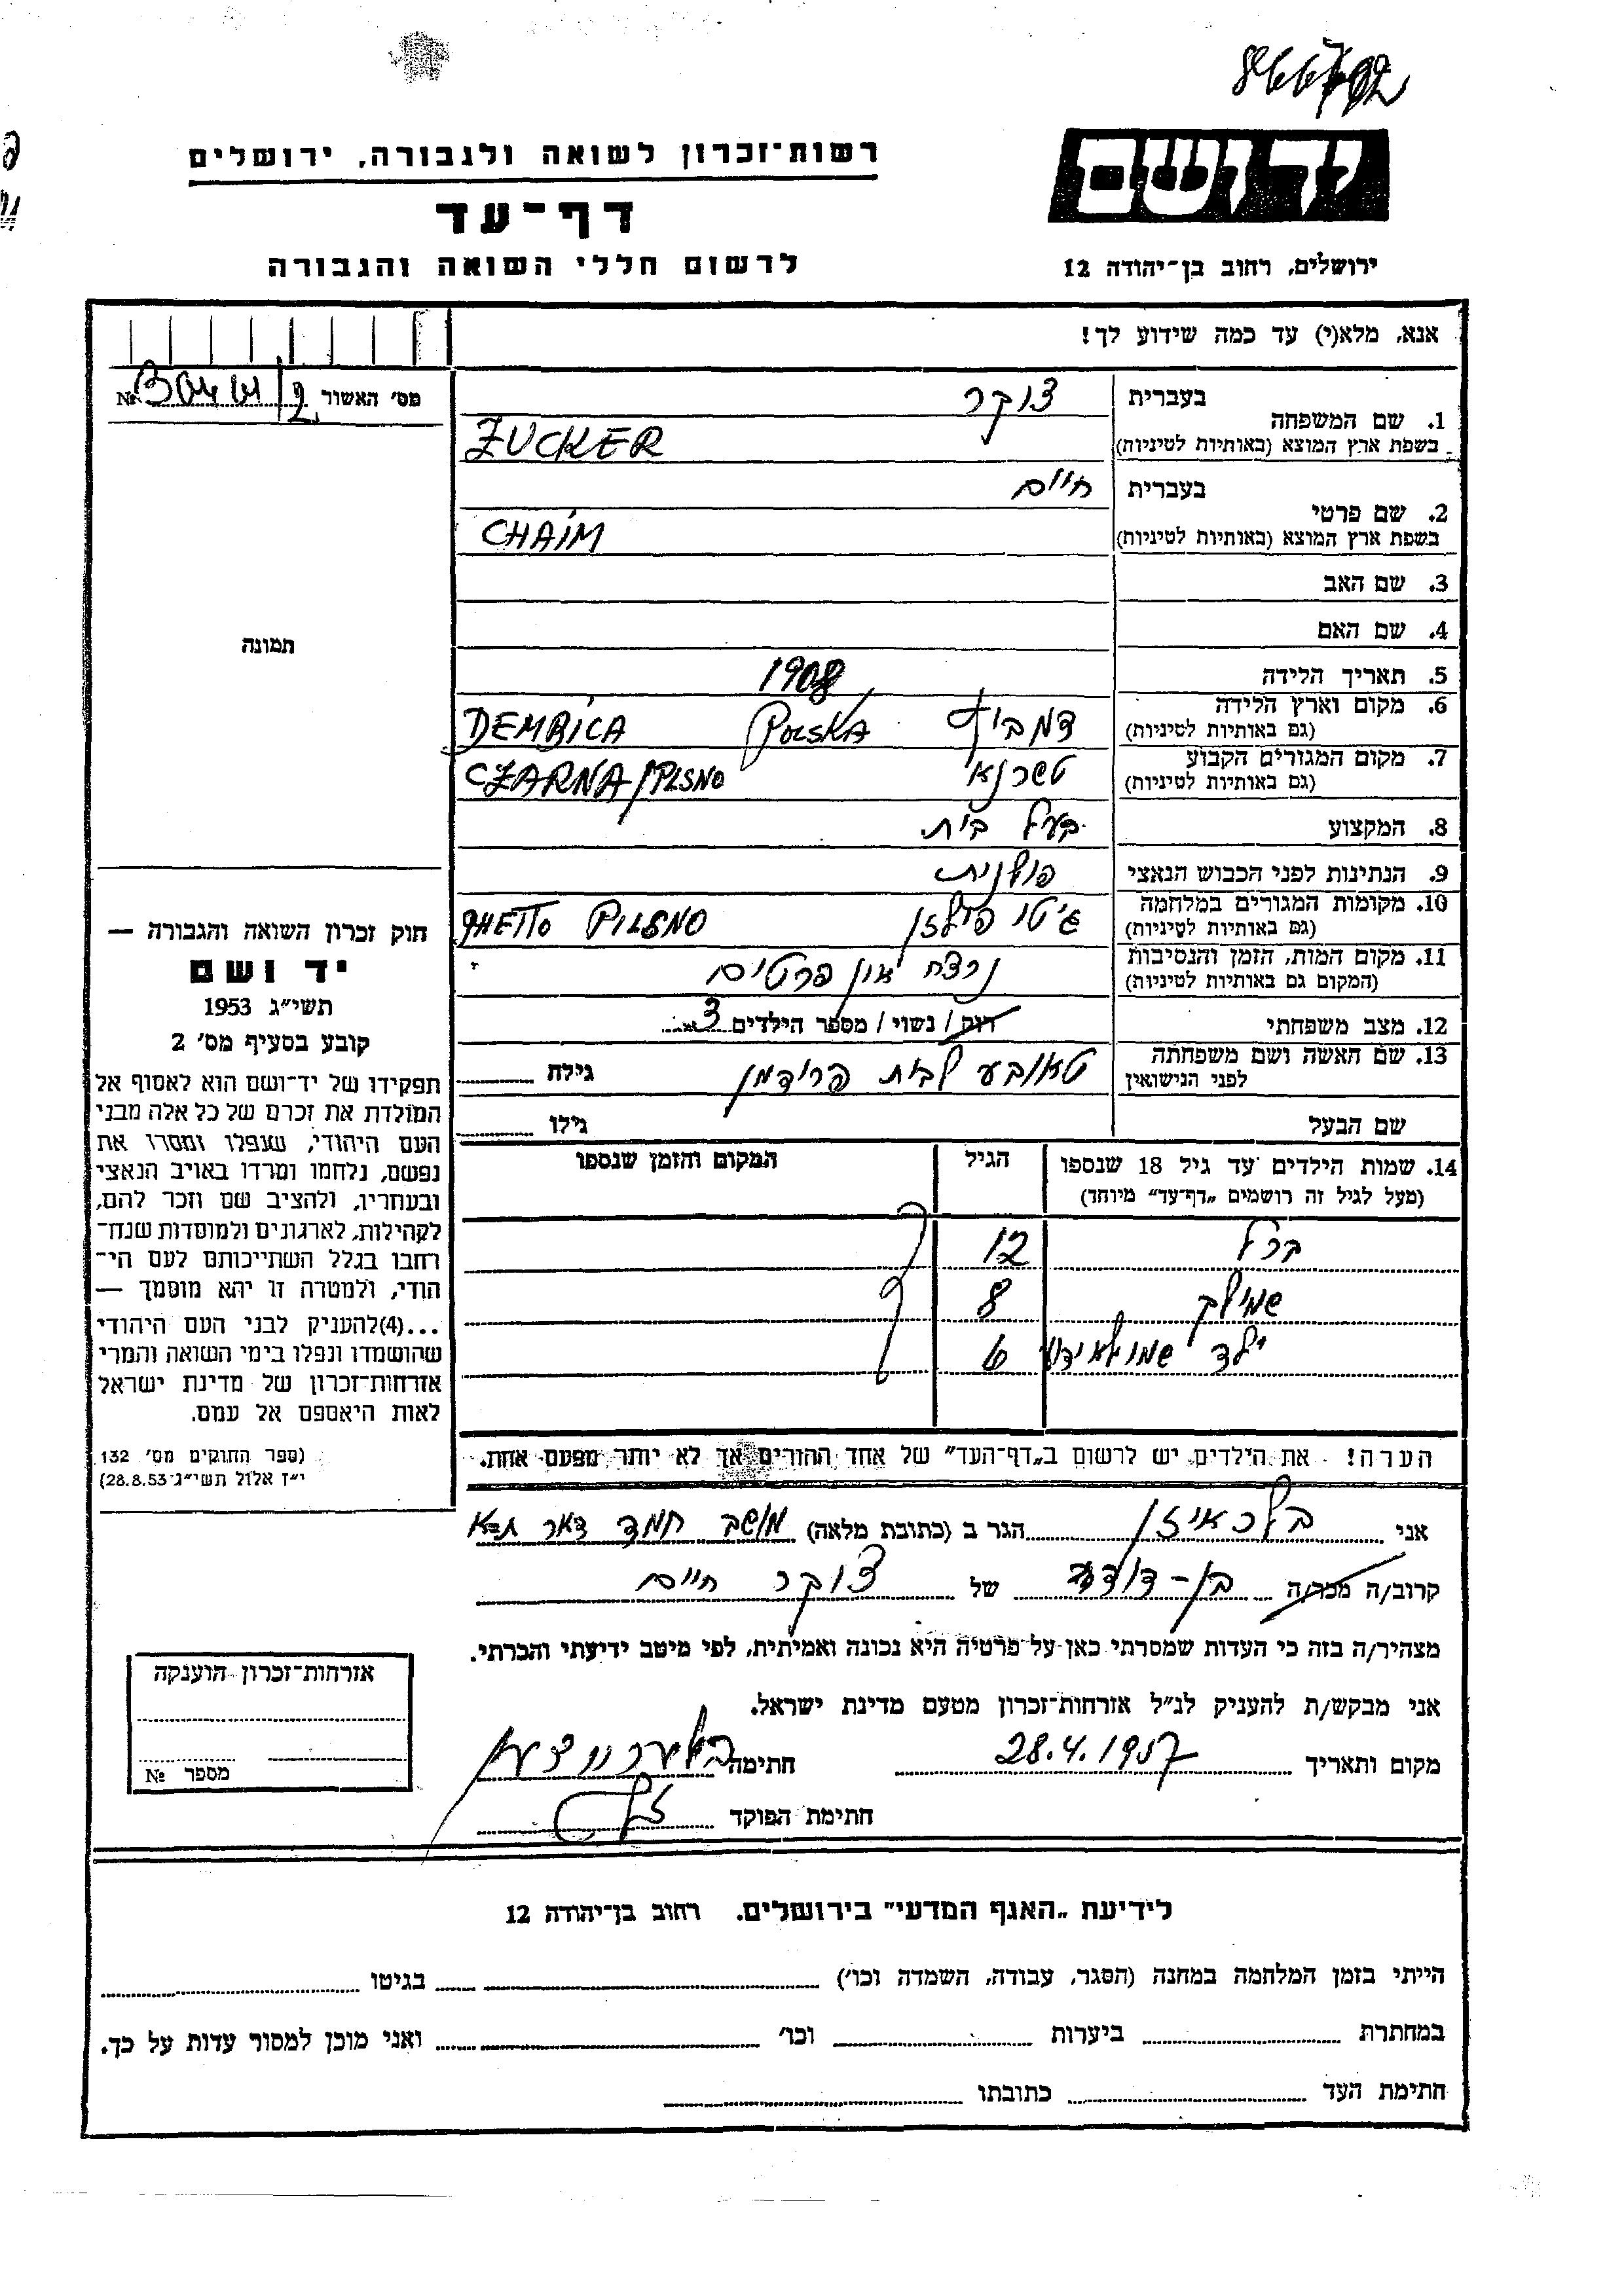 רשות־זכרון לשואה ולגבורה, ירושלים
דף־עד
לרשום חללי השואה והגבורה
יד ושם
ירושלים, רחוב בן־יהודה 12
אנא, מלא(י) עד כמה שידוע לך!
מס׳ האשור № 2
1. שם המשפחה
בעברית צוקר
בשפת ארץ המוצא (באותיות לטיניות) ZUCKER
2. שם פרטי
בעברית חיים
בשפת ארץ המוצא (באותיות לטיניות) CHAIM
3. שם האב
4. שם האם
תמונה
5. תאריך הלידה 1908
6. מקום וארץ הלידה
(גם באותיות לטיניות) DEMBICA POLSKA
7. מקום המגורים הקבוע טשרנא
(גם באותיות לטיניות) CZARNA/PLSNO
8. המקצוע בעל בית
9. הנתינות לפני הכבוש הנאצי פולנית
10. מקומות המגורים במלחמה גיטו פילזן
(גם באותיות לטיניות) GHETTO PILSNO
11. מקום המות, הזמן והנסיבות נרצח אין פרטים
(המקום גם באותיות לטיניות)
12. מצב משפחתי רוק / נשוי / מספר הילדים 3
13. שם האשה ושם משפחתה טאובע לבית פרידמן גילה
לפני הנישואין
שם הבעל גילו
14. שמות הילדים עד גיל 18 שנספו הגיל המקום והזמן שנספו
(מעל לגיל זה רושמים „דף־עד״ מיוחד)
ברל 12
שמילק 8
ילד 6
הערה! את הילדים יש לרשום ב„דף־העד״ של אחד ההורים אך לא יותר מפעם אחת.
חוק זכרון השואה והגבורה —
יד ושם
תשי״ג 1953
קובע בסעיף מס׳ 2
תפקידו של יד־ושם הוא לאסוף אל
המולדת את זכרם של כל אלה מבני
העם היהודי, שנפלו ומסרו את
נפשם, נלחמו ומרדו באויב הנאצי
ובעוזריו, ולהציב שם וזכר להם,
לקהילות, לארגונים ולמוסדות שנח־
רחבו בגלל השתייכותם לעם הי־
הודי, ולמטרה זו יהא מוסמך —
...(4)להעניק לבני העם היהודי
שהושמדו ונפלו בימי השואה והמרי
אזרחות־זכרון של מדינת ישראל
לאות היאספם אל עמם.
(ספר החוקים מס׳ 132
י״ז אלול תשי״ג 28.8.53)
אני הגר ב (כתובת מלאה) מושב חמד דאר
קרוב/ה מכר/ה בן-דודע של צוקר חיים
מצהיר/ה בזה כי העדות שמסרתי כאן על פרטיה היא נכונה ואמיתית, לפי מיטב ידיעתי והכרתי.
אני מבקש/ת להעניק לנ״ל אזרחות־זכרון מטעם מדינת ישראל.
מקום ותאריך 28.4.1957 חתימה
חתימת הפוקד
אזרחות־זכרון הוענקה
מספר №
לידיעת „האגף המדעי״ בירושלים. רחוב בן־יהודה 12
הייתי בזמן המלחמה במחנה (הסגר, עבודה, השמדה וכו׳) בגיטו
במחתרת ביערות וכו׳ ואני מוכן למסור עדות על כך.
חתימת העד כתובתו